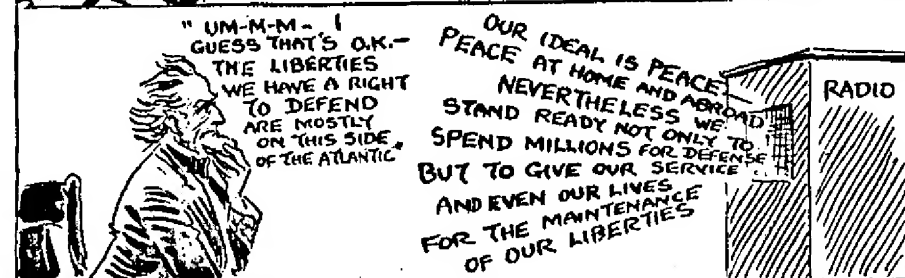 " UM-M-M - I
GUESS THAT'S O.K.-
THE LIBERTIES
WE HAVE A RIGHT
TO DEFEND
ARE MOSTLY
ON THIS SIDE
OF THE ATLANTIC"
OUR IDEAL IS PEACE-
PEACE AT HOME AND ABROAD
NEVERTHELESS WE
STAND READY NOT ONLY TO
SPEND MILLIONS FOR DEFENSE
BUT TO GIVE OUR SERVICE
AND EVEN OUR LIVES
FOR THE MAINTENANCE
OF OUR LIBERTIES
RADIO